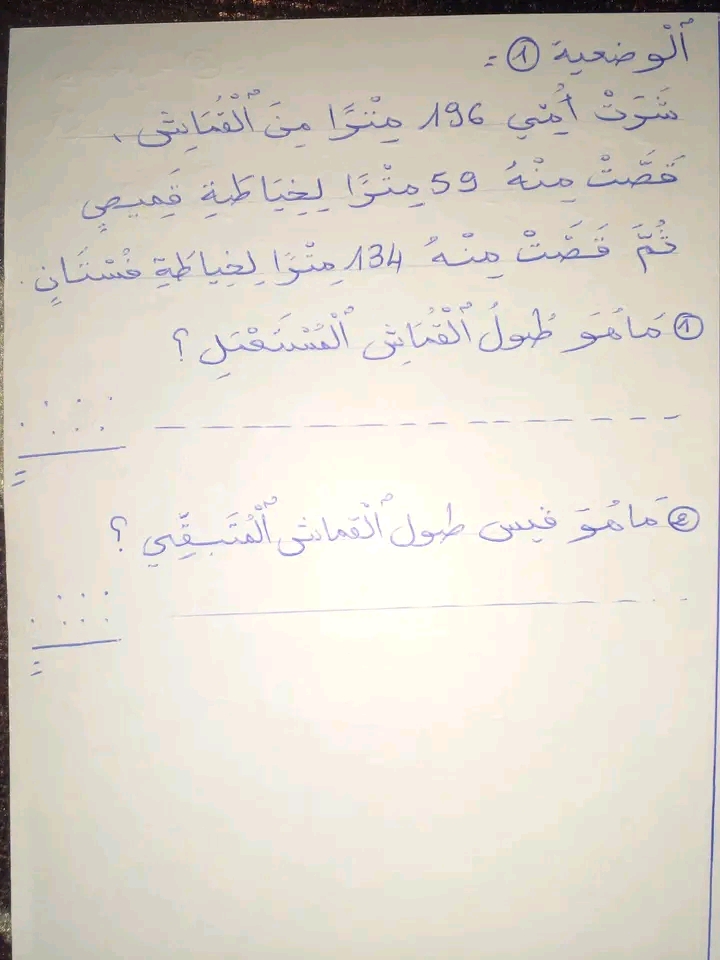 ٱلْوضعية ① :
شَرَتْ أُمِّي 196 مِتْرًا مِنَ ٱلْقُمَاشِ ،
قَصَّتْ مِنْهُ 59 مِتْرًا لِخِيَاطَةِ قَمِيصٍ
ثُمَّ قَصَّتْ مِنْهُ 134 مِتْرًا لِخِياطَةِ فُسْتَانٍ .
① مَا هُوَ طُولُ ٱلْقُمَاشِ ٱلْمُسْتَعْمَلِ ؟
② مَا هُوَ قيس طول ٱلْقماش ٱلْمُتَبَقِّي ؟